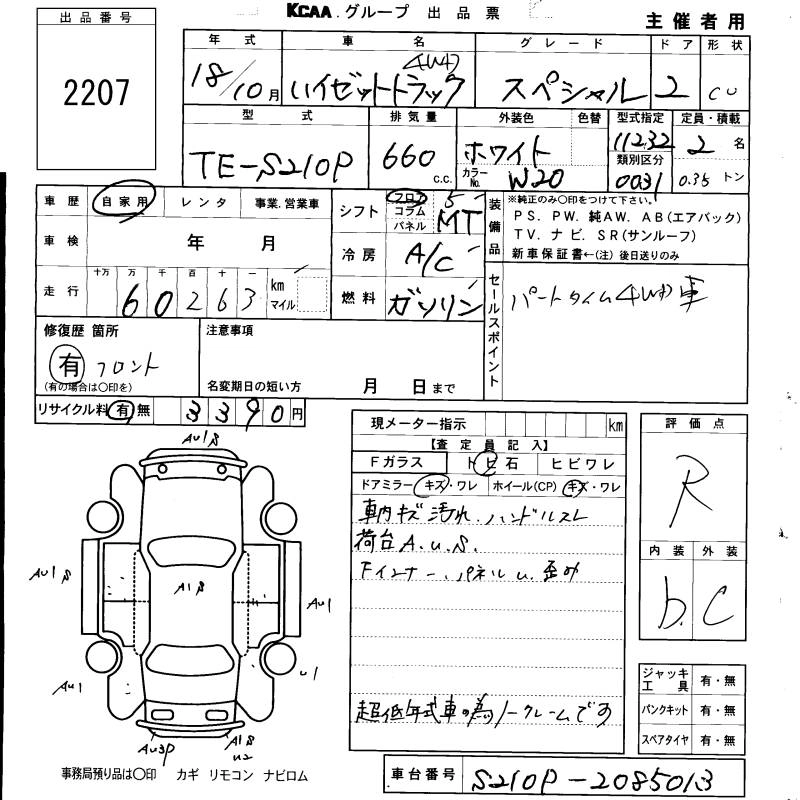 KCAA グループ 出品票
主催者用
出品番号
2207
年式 車名 グレード ドア 形状
18/10月 ハイゼットトラック 4WD スペシャル 2 CU
型式 排気量 外装色 色替 型式指定 定員・積載
TE-S210P 660 c.c. ホワイト 11232 2名
カラーNo. W20 類別区分 0031 0.35トン
車歴 自家用 レンタ 事業.営業車
車検 年 月
走行 十万 万 千 百 十 一
60263 km マイル
シフト フロア コラム パネル 5 MT
冷房 A/C
燃料 ガソリン
装備品
※純正のみ〇印をつけて下さい。
PS. PW. 純AW. AB(エアバック)
TV. ナビ. SR(サンルーフ)
新車保証書←(注) 後日送りのみ
セールスポイント
パートタイム4WD車
修復歴 箇所
有 フロント
(有の場合は〇印を)
注意事項
名変期日の短い方 月 日まで
リサイクル料 有 無 3390円
現メーター指示 km
【査定員記入】
Fガラス トビ石 ヒビワレ
ドアミラー キズ・ワレ ホイール(CP) キズ・ワレ
車内キズ 汚れ.ハンドルスレ
荷台A.U.S.
Fインナー.パネルU.歪み
超低年式車の為ノークレームです
評価点
R
内装 外装
b. C
ジャッキ工具 有・無
パンクキット 有・無
スペアタイヤ 有・無
AU1S
AU1S
A1S
AU1
U1
AU1
AU3P
A1S
U2
事務局預り品は〇印 カギ リモコン ナビロム
車台番号 S210P-2085013